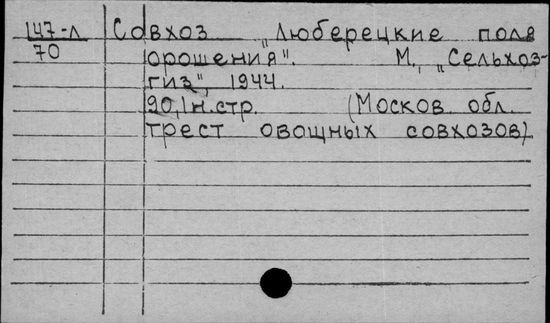 147-л Совхоз „Люберецкие поля
70 орошения". М., „Сельхоз-
гиз", 1944.
90,1н.стр. (Москов. обл.
трест овощных совхозов)